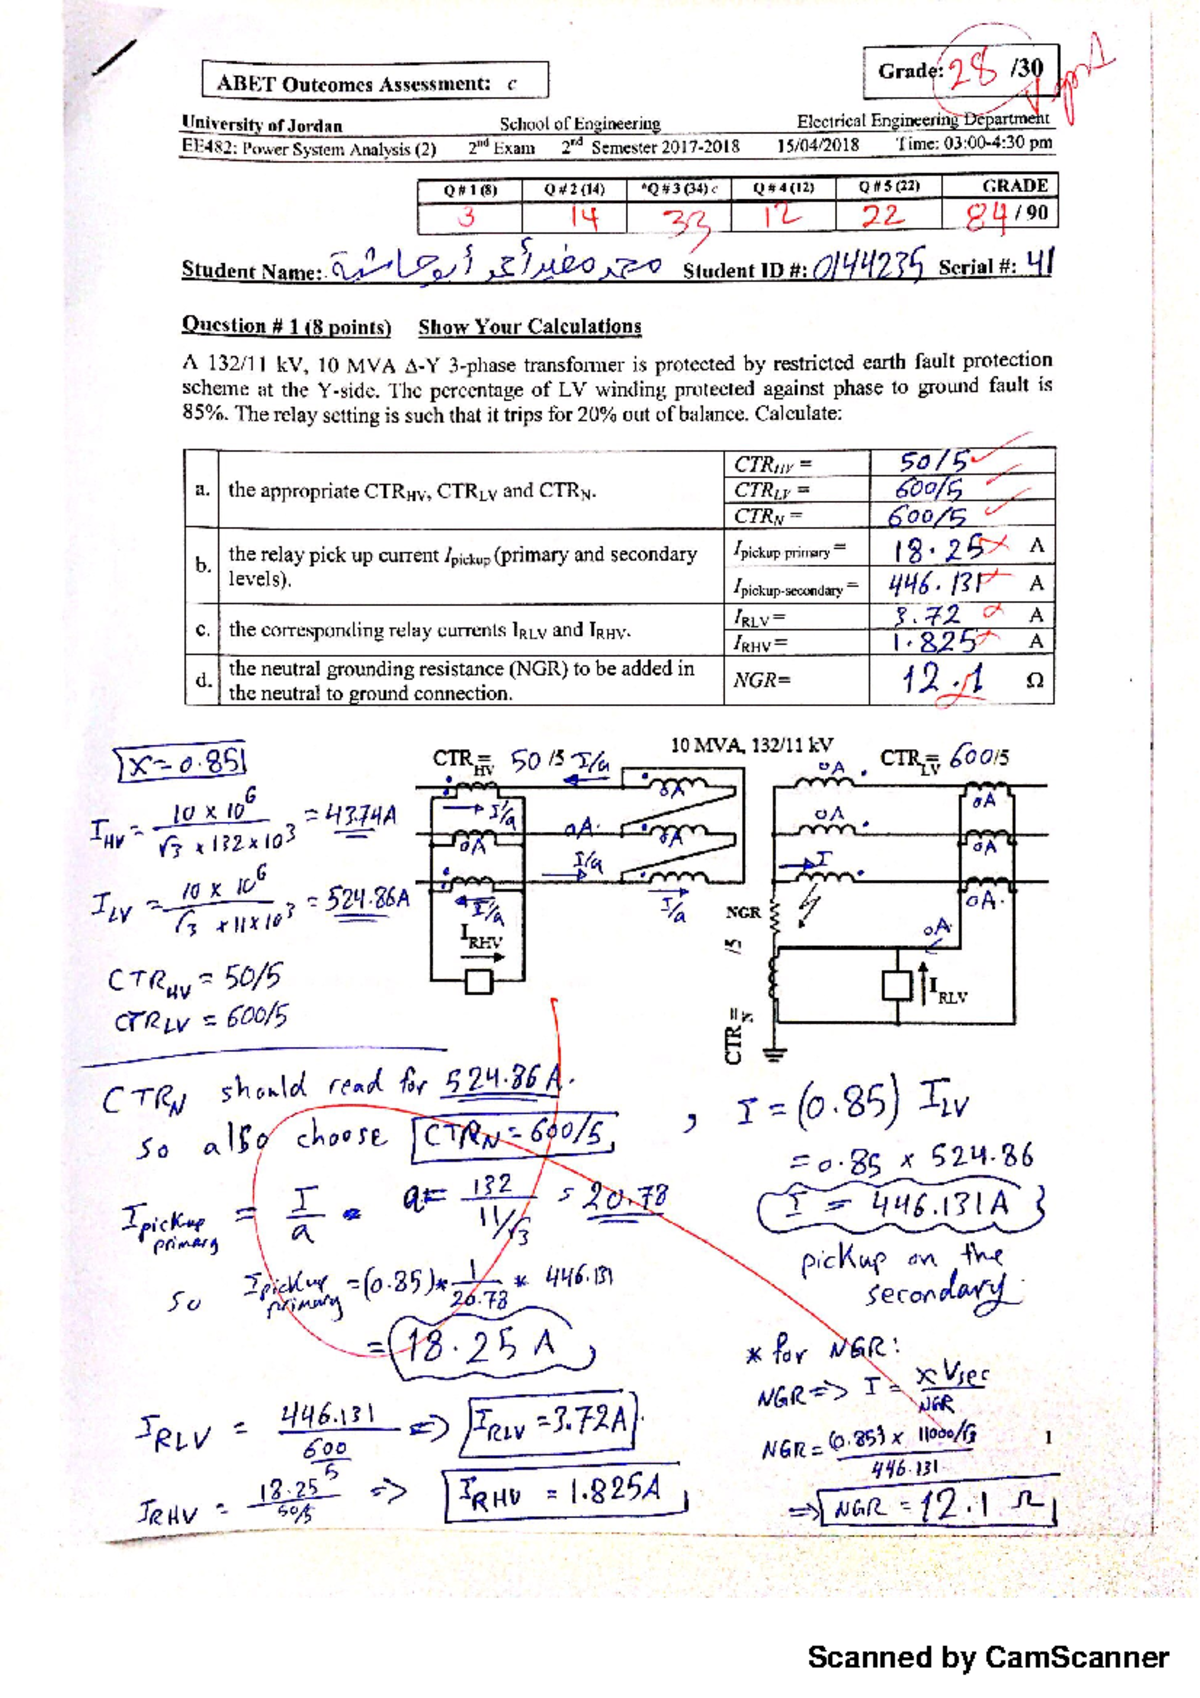 ABET Outcomes Assessment: c
Grade: 28 /30
University of Jordan School of Engineering Electrical Engineering Department
EE482: Power System Analysis (2) 2nd Exam 2nd Semester 2017-2018 15/04/2018 Time: 03:00-4:30 pm
Q # 1 (8) Q # 2 (14) *Q # 3 (34) c Q # 4 (12) Q # 5 (22) GRADE
3 14 33 12 22 84 / 90
Student Name: محمد أحمد أبو Student ID #: 0144235 Serial #: 41
Question # 1 (8 points) Show Your Calculations
A 132/11 kV, 10 MVA Δ-Y 3-phase transformer is protected by restricted earth fault protection
scheme at the Y-side. The percentage of LV winding protected against phase to ground fault is
85%. The relay setting is such that it trips for 20% out of balance. Calculate:
a. the appropriate CTRHV, CTRLV and CTRN.
CTRHV = 50/5
CTRLV = 600/5
CTRN = 600/5
b. the relay pick up current Ipickup (primary and secondary
levels).
Ipickup primary = 18.25 A
Ipickup-secondary = 446.131 A
c. the corresponding relay currents IRLV and IRHV.
IRLV = 3.72 A
IRHV = 1.825 A
d. the neutral grounding resistance (NGR) to be added in
the neutral to ground connection.
NGR= 12.1 Ω
X=0.85
IHV = 10 x 10^6 / √3 x 132x10^3 = 43.74A
ILV = 10 x 10^6 / √3 x 11x10^3 = 524.86A
CTRHV = 50/5
CTRLV = 600/5
10 MVA, 132/11 kV
CTRHV = 50 /5 I/a
I/a
0A
0A.
I/a
I/a
I/a
IRHV
0A
0A
CTRLV = 600/5
0A
0A
I
0A
0A
0A.
0A.
NGR
/5
CTRN =
IRLV
CTRN should read for 524.86A.
so also choose CTRN = 600/5,
, I = (0.85) ILV
= 0.85 x 524.86
I = 446.131A
pickup on the
secondary.
Ipickup primary = I/a . a = 132 / 11/√3 = 20.78
so Ipickup primary = (0.85)* 1/20.78 * 446.131
= 18.25 A ,
* for NGR:
NGR => I = xVsec / NGR
NGR = (0.85) x 11000/√3 / 446.131
=> NGR = 12.1 Ω
IRLV = 446.131 / 600/5 => IRLV = 3.72A.
IRHV = 18.25 / 50/5 => IRHV = 1.825A
1
Scanned by CamScanner